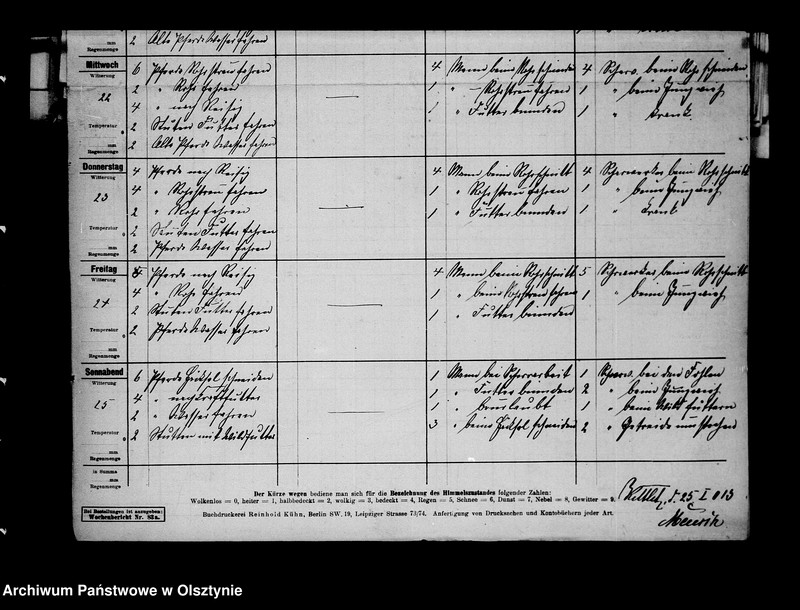 mm
Regenmenge
2 Alte Pferde Wasser fahren
Mittwoch
Witterung
22
Temperatur
mm
Regenmenge
6 Pferde Rohrstreu fahren
2 " Rohr fahren
4 " nach Reisig
2 Stuten Futter fahren
2 Alte Pferde Wasser fahren
4 Mann beim Rohrschneiden
1 " Rohrstreu fahren
1 " Futter
4 Scharw. beim Rohrschneiden
1 " beim Jungvieh
1 " krank
Donnerstag
Witterung
23
Temperatur
mm
Regenmenge
4 Pferde nach Reisig
4 " Rohrstreu fahren
2 " Rohr fahren
2 Stuten Futter fahren
2 Pferde Wasser fahren
4 Mann beim Rohrschnitt
1 " Rohrstreu fahren
1 " Futter
4 Scharwerker beim Rohrschnitt
1 " beim Jungvieh
1 " krank
Freitag
Witterung
24
Temperatur
mm
Regenmenge
4 Pferde nach Reisig
4 " Rohr fahren
2 Stuten Futter fahren
2 Pferde Wasser fahren
4 Mann beim Rohrschnitt
1 " beim Rohrstreu fahren
1 " Futter
5 Scharwerker beim Rohrschnitt
1 " beim Jungvieh
Sonnabend
Witterung
25
Temperatur
mm
Regenmenge
6 Pferde Häcksel schneiden
4 " nach
2 " Wasser fahren
2 Stuten mit Wildfutter
1 Mann bei Scharwerkerarbeit
1 " Futter
1 " beurlaubt
3 " beim Häcksel schneiden
1 Scharw. bei den Fohlen
2 " beim Jungvieh
1 " beim füttern
2 " Getreide umstechen
in Summa
mm
Regenmenge
Der Kürze wegen bediene man sich für die Bezeichnung des Himmelszustandes folgender Zahlen:
Wolkenlos = 0, heiter = 1, halbbedeckt = 2, wolkig = 3, bedeckt = 4, Regen = 5, Schnee = 6, Dunst = 7, Nebel = 8, Gewitter = 9.
Bei Bestellungen ist anzugeben:
Wochenbericht Nr. 82a.
Buchdruckerei Reinhold Kühn, Berlin SW. 19, Leipziger Strasse 73/74. Anfertigung von Drucksachen und Kontobüchern jeder Art.
d. 25 I 013
Archiwum Państwowe w Olsztynie